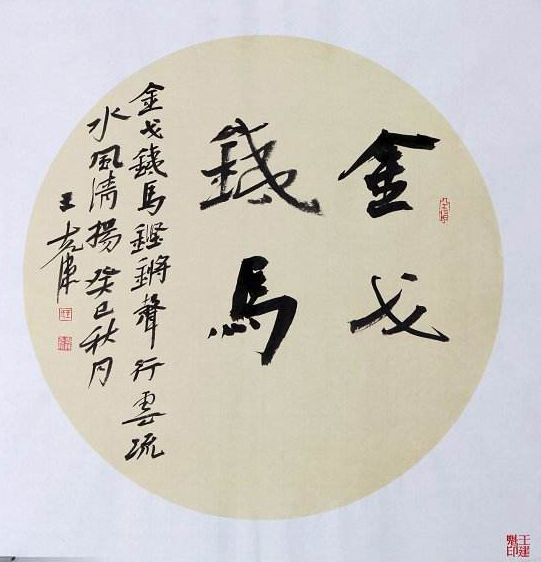 金戈
鐵馬
金戈鐵馬鏗鏘聲行雲流
水風清揚癸巳秋月
王
王建
魁印